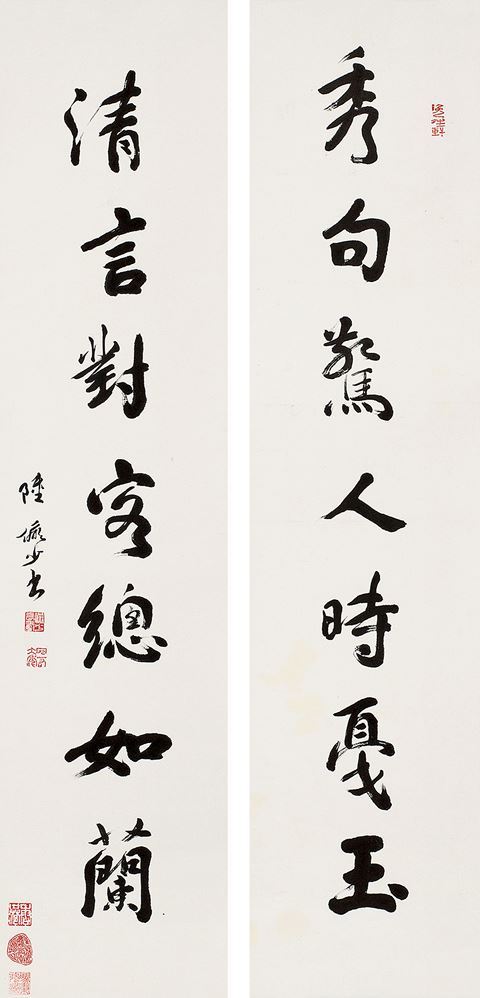 秀句驚人時戞玉
清言對客總如蘭
陸儼少書